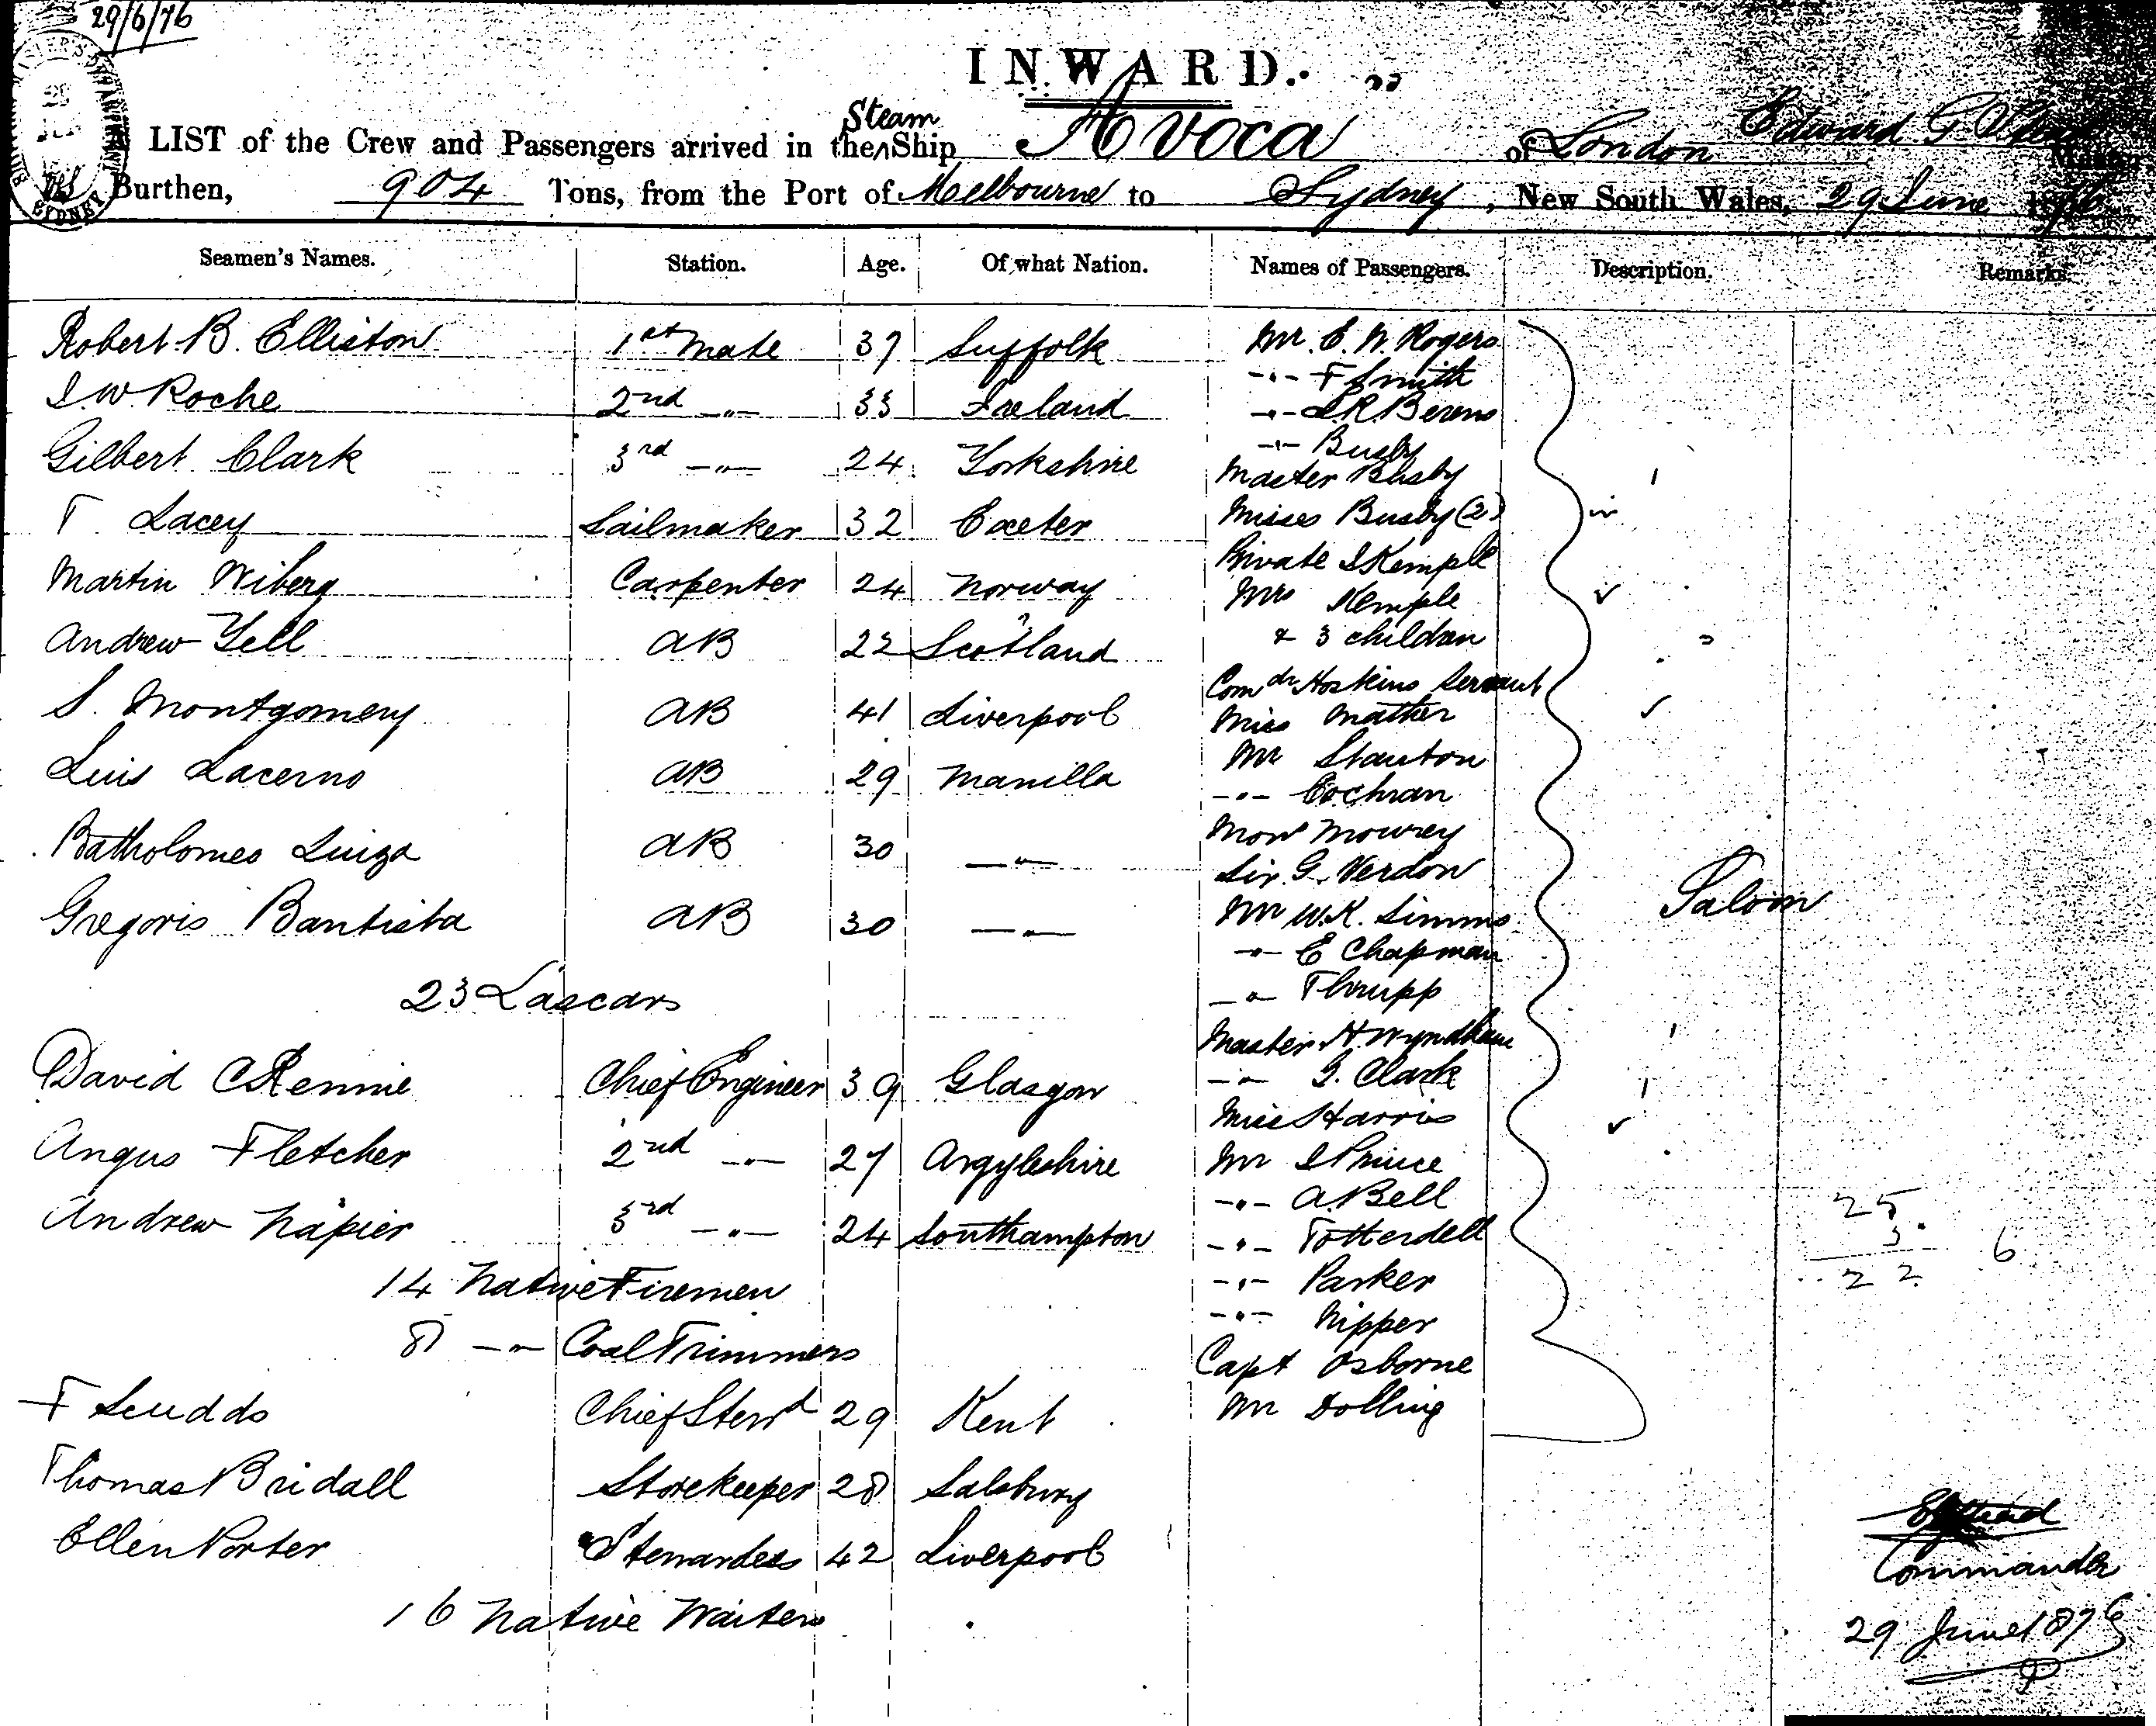 29/6/76
INWARD.
A LIST of the Crew and Passengers arrived in the Steam Ship Avoca of London Edward G.
Burthen, 904 Tons, from the Port of Melbourne to Sydney, New South Wales, 29 June 1876
Seamen's Names. Station. Age. Of what Nation. Names of Passengers. Description. Remarks.
Robert B. Elliston 1st Mate 37 Suffolk Mr. E. W. Rogers
-"- F Smith
I. W. Roche 2nd -"- 33 Ireland -"- L.R. Berens
-"- Busby
Gilbert Clark 3rd -"- 24 Yorkshire Master Busby
T. Lacey Sailmaker 32 Exeter Misses Busby (2)
Private I Kemple
Martin Wiberg Carpenter 24 Norway Mrs Kemple
Andrew Yell AB 22 Scotland & 3 children
Comdr Hoskins Servant
S. Montgomery AB 41 Liverpool Miss Mather
Mr Stanton
Luis Lacerno AB 29 Manilla -"- Cochran
Mons Mowrey
Batholomeo Luiza AB 30 -"- Sir G. Verdon
Gregoris Bantista AB 30 -"- Mr W.K. Simms Saloon
-"- E Chapman
23 Lascars -"- Thrupp
Master H. Wyndham
David C Rennie Chief Engineer 39 Glasgow -"- G. Clark
Miss Harris
Angus Fletcher 2nd -"- 27 Argyleshire Mr I Prince
-"- A. Bell
Andrew Napier 3rd -"- 24 Southampton -"- Totterdell
14 Native Firemen -"- Parker
-"- Nipper
8 -"- Coal Trimmers Capt Osborne
F Scudds Chief Stewd 29 Kent Mr Dolling
25
3
22 6
Thomas Bridall Storekeeper 28 Salsbury
Ellen Porter Stewardess 42 Liverpool
16 Native Waiters
Commander
29 June 1876